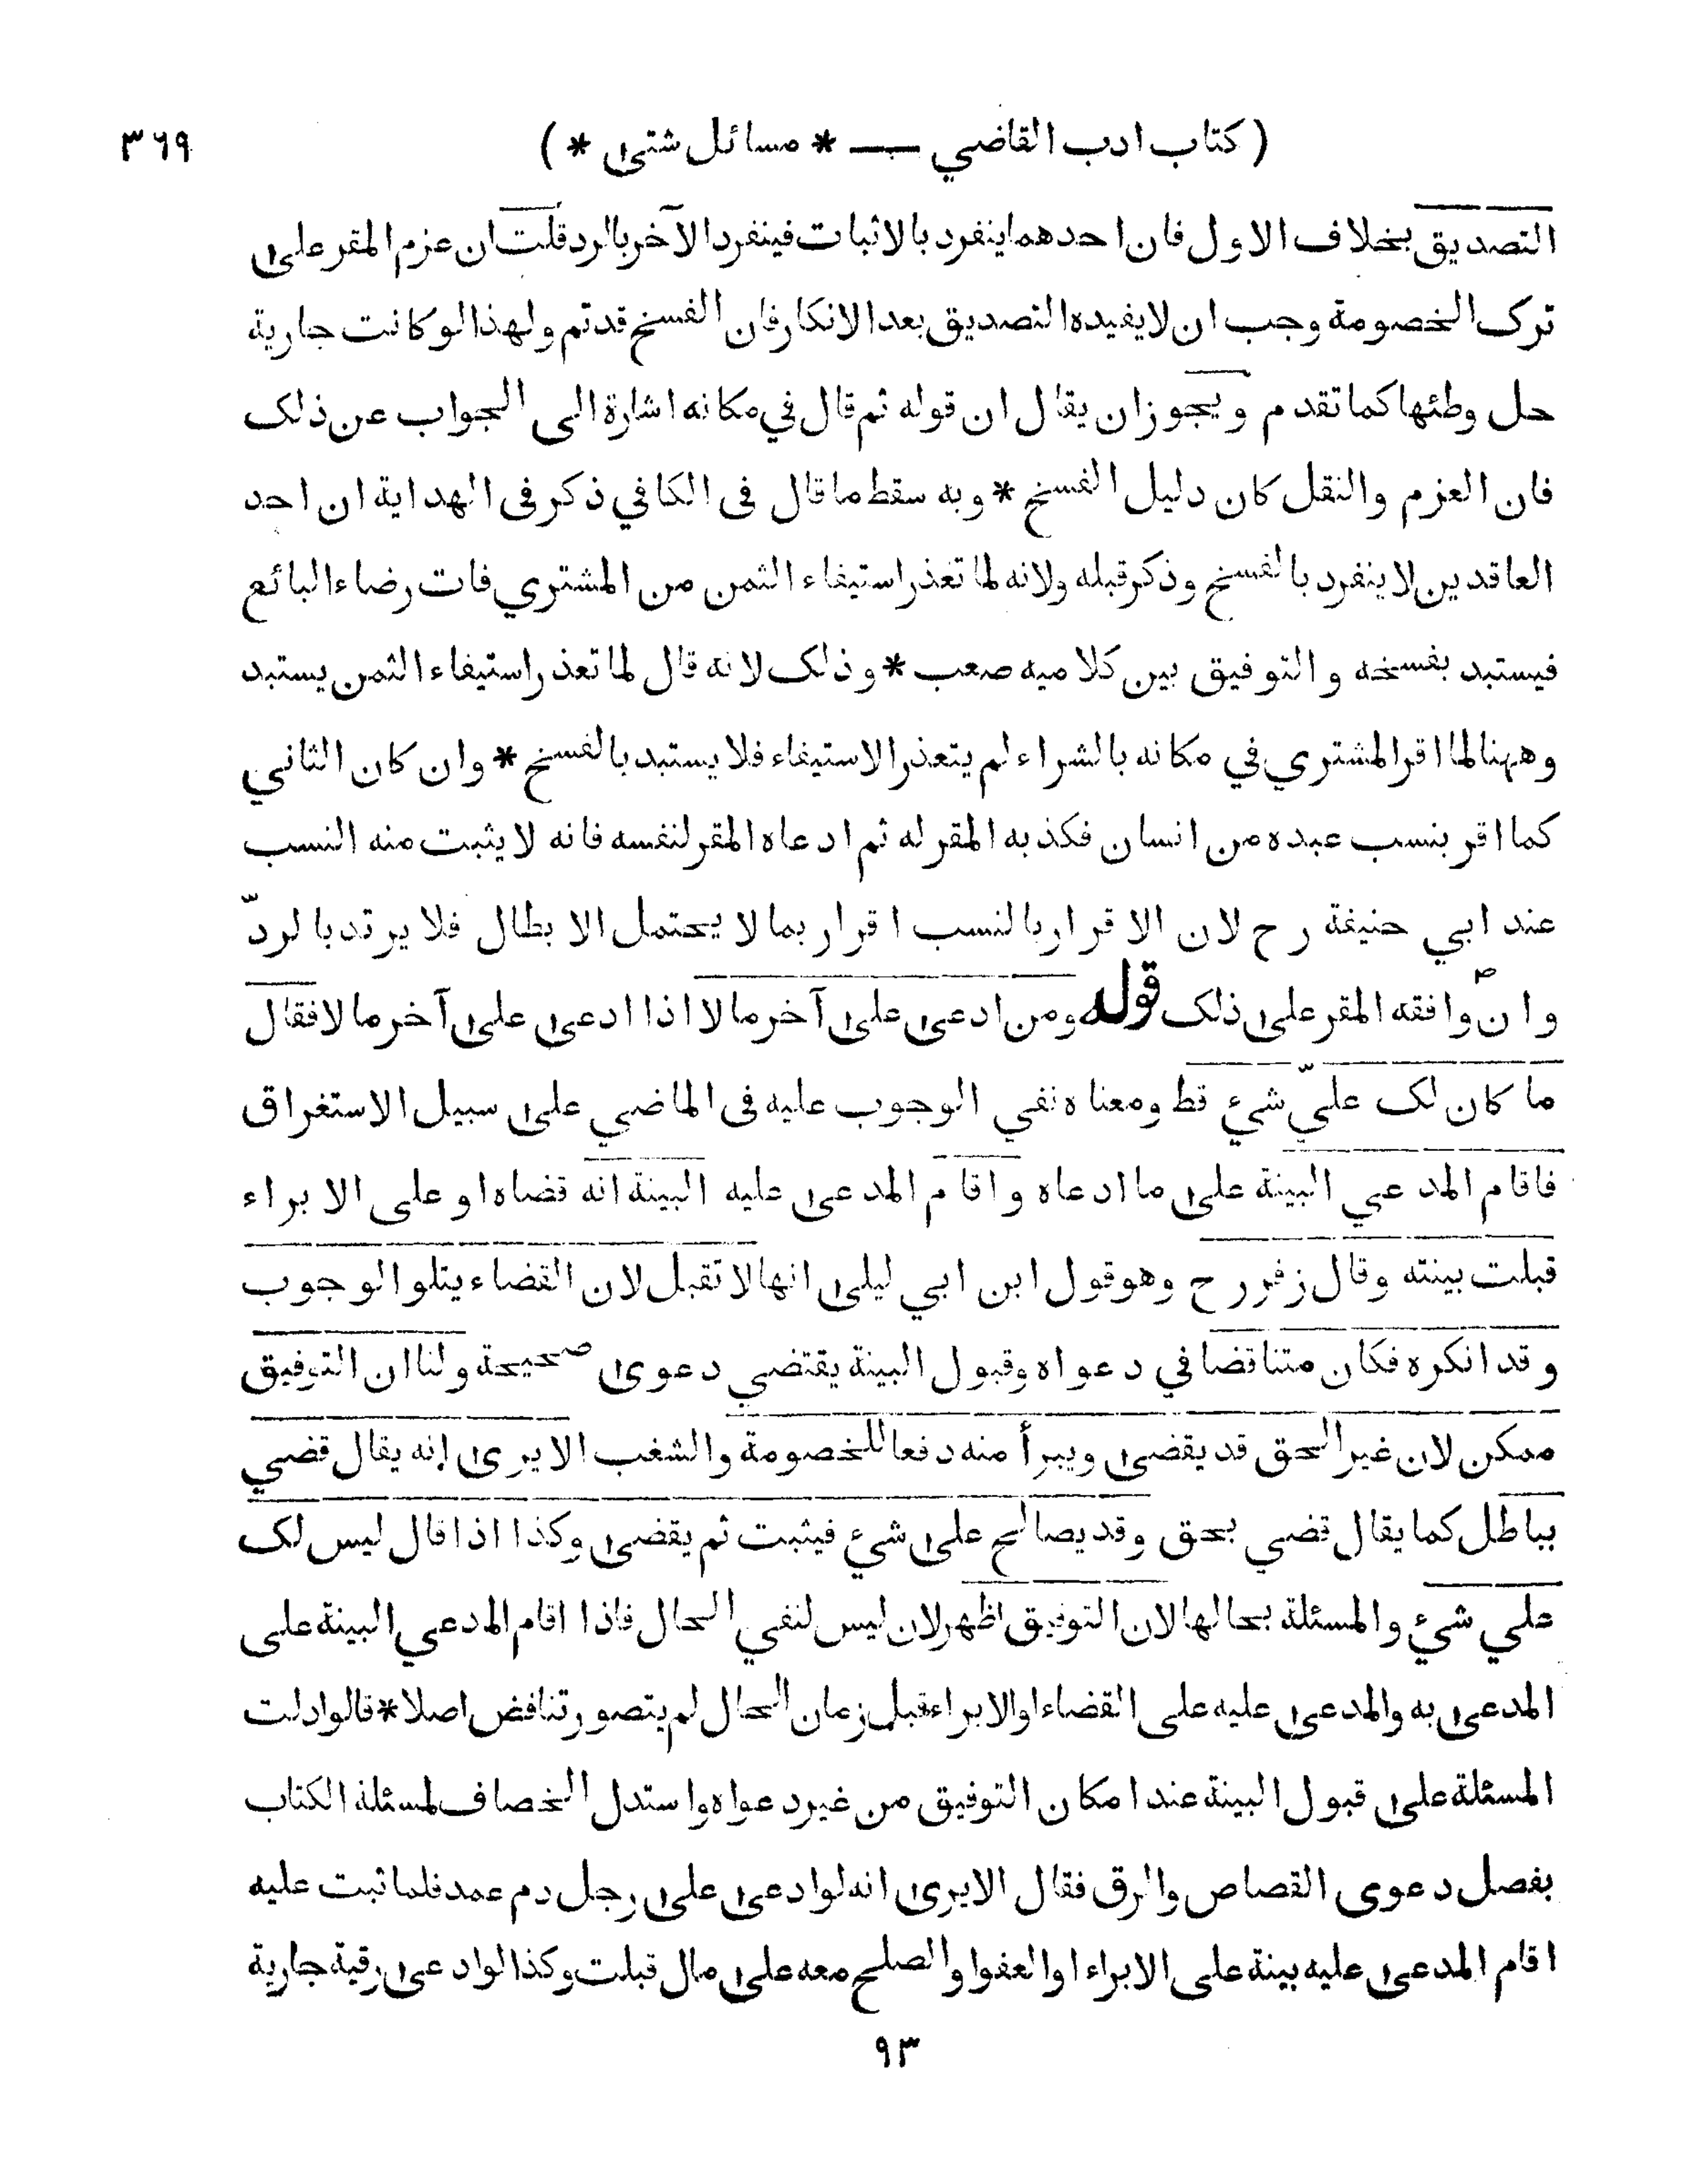 ( كتاب ادب القاضي — * مسائل شتى * )
٣٦٩
التصديق بخلاف الاول فان احدهما ينفرد بالاثبات فينفرد الآخر بالرد قلت ان عزم المقر على
ترك الخصومة وجب ان لا يفيده التصديق بعد الانكار فان الفسخ قد تم ولهذا لو كانت جارية
حل وطئها كما تقدم ويجوز ان يقال ان قوله ثم قال في مكانه اشارة الى الجواب عن ذلك
فان العزم والنقل كان دليل الفسخ * وبه سقط ما قال فى الكافي ذكر فى الهداية ان احد
العاقدين لا ينفرد بالفسخ وذكر قبله ولانه لما تعذر استيفاء الثمن من المشتري فات رضاء البائع
فيستبد بفسخه والتوفيق بين كلاميه صعب * وذلك لانه قال لما تعذر استيفاء الثمن يستبد
وههنا لما اقر المشتري في مكانه بالشراء لم يتعذر الاستيفاء فلا يستبد بالفسخ * وان كان الثاني
كما اقر بنسب عبده من انسان فكذبه المقر له ثم ادعاه المقر لنفسه فانه لا يثبت منه النسب
عند ابي حنيفة رح لان الاقرار بالنسب اقرار بما لا يحتمل الابطال فلا يرتد بالردّ
وان وافقه المقر على ذلك قوله ومن ادعى على آخر مالا اذا ادعى على آخر مالا فقال
ما كان لك عليّ شيء قط ومعناه نفي الوجوب عليه فى الماضي على سبيل الاستغراق
فاقام المدعي البينة على ما ادعاه واقام المدعى عليه البينة انه قضاه او على الابراء
قبلت بينته وقال زفر رح وهو قول ابن ابي ليلى انها لا تقبل لان القضاء يتلو الوجوب
وقد انكره فكان متناقضا في دعواه وقبول البينة يقتضي دعوى صحيحة ولنا ان التوفيق
ممكن لان غير الحق قد يقضى ويبرأ منه دفعا للخصومة والشغب الا يرى إنه يقال قضي
بباطل كما يقال قضي بحق وقد يصالح على شيء فيثبت ثم يقضى وكذا اذا قال ليس لك
علي شيء والمسئلة بحالها لان التوفيق اظهر لان ليس لنفي الحال فاذا اقام المدعي البينة على
المدعى به والمدعى عليه على القضاء او الابراء قبل زمان الحال لم يتصور تناقض اصلا * قالوا دلت
المسئلة على قبول البينة عند امكان التوفيق من غير دعواه واستدل الخصاف لمسئلة الكتاب
بفصل دعوى القصاص والرق فقال الا يرى انه لو ادعى على رجل دم عمد فلما ثبت عليه
اقام المدعى عليه بينة على الابراء او العفو او الصلح معه على مال قبلت وكذا لو ادعى رقبة جارية
٩٣